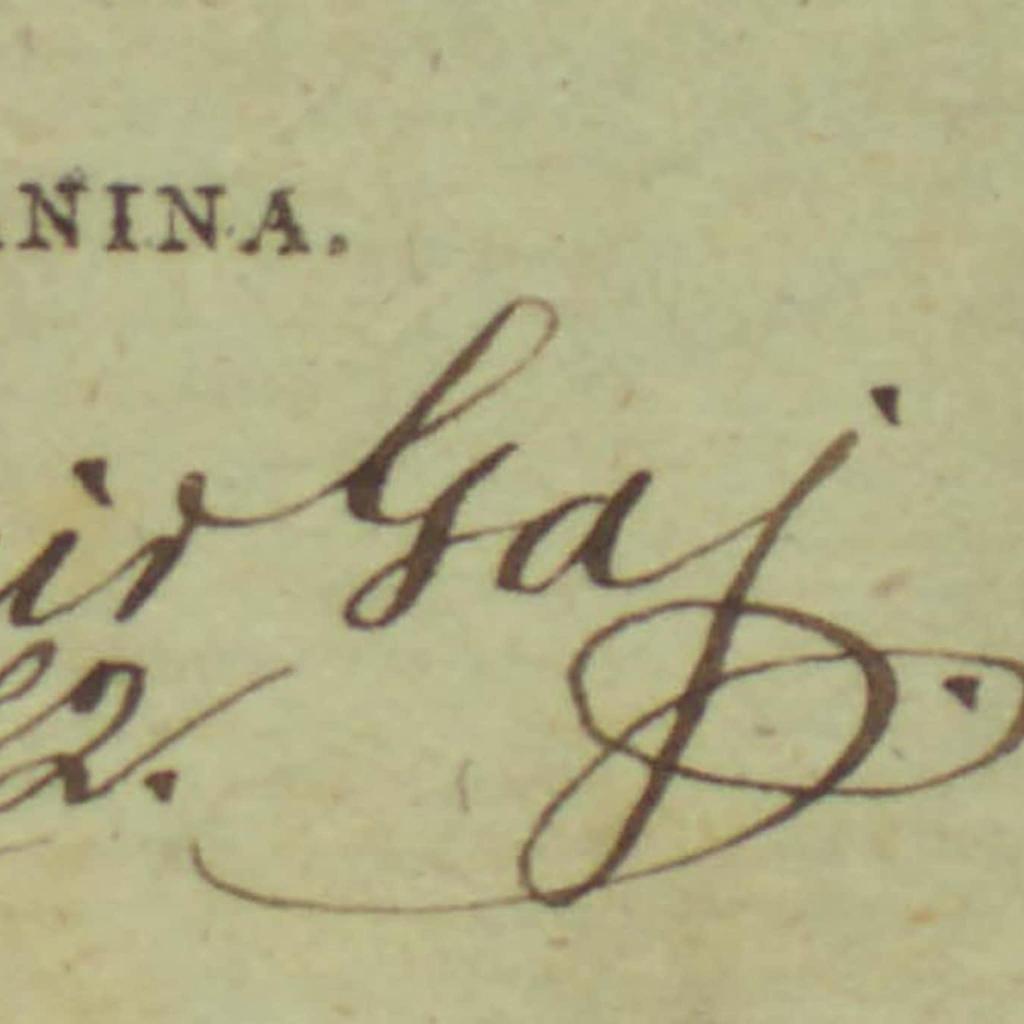 ANINA.
ir Gaj
2.